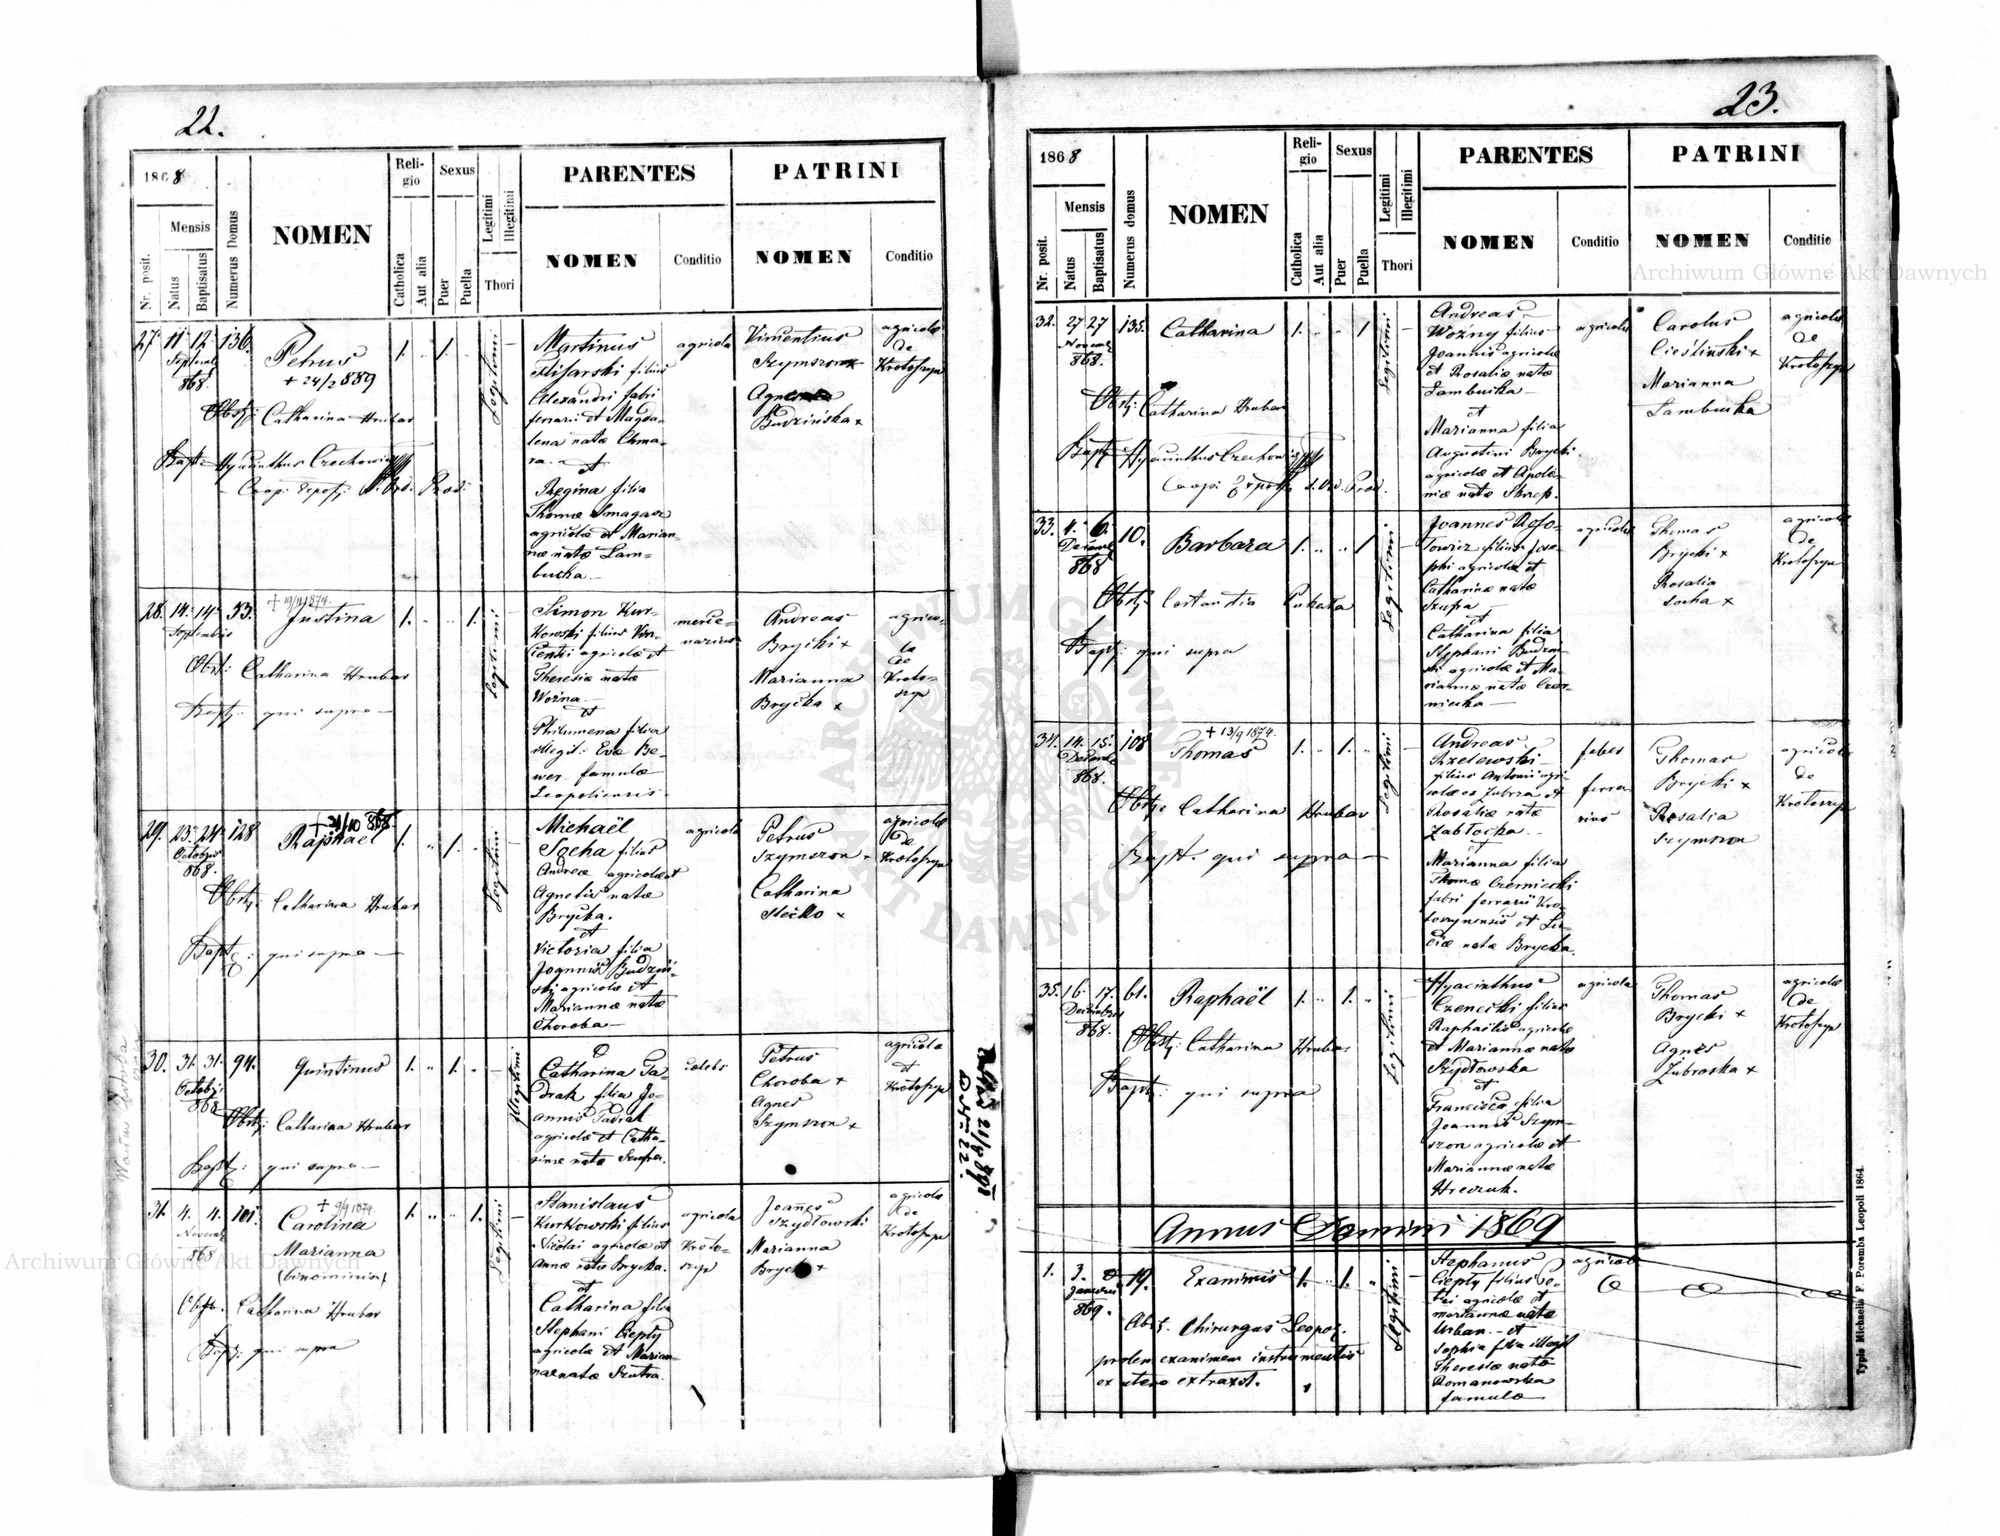 22.
1868
Nr. posit.
Mensis
Natus
Baptisatus
Numerus Domus
NOMEN
Religio
Catholica
Aut alia
Sexus
Puer
Puella
Legitimi
Illegitimi
Thori
PARENTES
NOMEN
Conditio
PATRINI
NOMEN
Conditio
27. 11. 12. 136. Petrus 1. „ 1.
Septemb.
868.
+ 24/2 889
Obst: Catharina Hrubar
Bapt: Hyacinthus Czechowicz
Coop: Expos: Ord. Pred.
Legitimi
Martinus
filius
Alexandri fabri
ferrarii et Magda-
lena natæ Chma-
ra.
et
Regina filia
Thomæ Smagacz
agricolæ et Marian-
næ natæ Lam-
bucka
agricola
Vincentius
Szymszon x
Budzińska x
agricolæ
de
Krotoszyn
28. 14. 14. 33. Justina 1. „ „ 1.
Septembris
+ 19/11 1874.
Obst: Catharina Hrubar
Bapt: qui supra
Legitimi
Simon Kur-
kowski filius Vin-
centii agricolæ et
Theresiæ natæ
Woźna
et
Philumena filia
illegit: Evæ Be-
wer famulæ
Leopoliensis
merce-
narius
Andreas
Brycki x
Marianna
Brycka x
agrico-
la
de
Kroto-
szyn
29. 23. 24. 128 Raphaël 1. „ 1.
Octobris
868.
+ 21/10 868
Obst: Catharina Hrubar
Bapt: qui supra
Legitimi
Michaël
Socha filius
Andreæ agricolæ et
Agnetis natæ
Brycka.
et
Victoria filia
Joannis Budziń-
ski agricolæ et
Mariannæ natæ
Choroba
agricola
Petrus
Szymszon
Catharina
Stećko x
agricolæ
de
Krotoszyn
30. 31. 31. 94. Quintinus 1. „ 1.
Octobr.
868
Obst: Catharina Hrubar
Bapt: qui supra
Illegitimi
Catharina Ta-
drak filia Jo-
annis Tadrak
agricolæ et Catha-
rinæ natæ Szufra.
cœlebs
Petrus
Choroba x
Agnes
Szymszon x
agricola
et
Krotoszyn
31. 4. 4. 101. Carolina 1. „ „ 1.
Novemb.
868
+ 9/9 1874.
Marianna
(binominis)
Obst. Catharina Hrubar
Bapt: qui supra
Legitimi
Stanislaus
Kurkowski filius
Nicolai agricolæ et
Annæ natæ Brycka.
et
Catharina filia
Stephani Cieply
agricolæ et Marian-
næ natæ Szutra.
agricola
Kroto-
szyn
Joannes
Szydłowski
Marianna
Brycka x
agricolæ
de
Krotoszyn
23.
1868
Nr. posit.
Mensis
Natus
Baptisatus
Numerus domus
NOMEN
Religio
Catholica
Aut alia
Sexus
Puer
Puella
Legitimi
Illegitimi
Thori
PARENTES
NOMEN
Conditio
PATRINI
NOMEN
Conditio
32. 27 27 135. Catharina 1. „ „ 1
Novemb.
868.
Obst: Catharina Hrubar
Bapt: Hyacinthus Czechowicz
Coop: Expos: S. Ord. Pred.
Legitimi
Andreas
Wozny filius
Joannis agricolæ
et Rosaliæ natæ
Lambucka
et
Marianna filia
Augustini Brycki
agricolæ et Apolo-
niæ natæ Skrzep.
agricola
Carolus
Cieśliński x
Marianna
Lambucka
agricolæ
de
Krotoszyn
33. 4. 6. 10. Barbara 1. „ „ 1
Decemb.
868
Obst: Constantia Pukała
Bapt: qui supra
Legitimi
Joannes
filius Jose-
phi agricolæ et
Catharinæ natæ
Szufra
et
Catharina filia
Stephani Budzyn-
ski agricolæ et Ma-
riannæ natæ Czer-
niecka
agricola
Thomas
Brycki x
Rosalia
Socha x
agricolæ
de
Krotoszyn
34. 14. 15. 108 Thomas 1. „ 1.
Decemb.
868.
+ 13/9 1874.
Obst: Catharina Hrubar
Bapt. qui supra
Legitimi
Andreas
Szelewski
filius Antonii agri-
colæ ex Zubrza et
Rosaliæ natæ
Zabłocka.
et
Marianna filia
Thomæ Czerniecki
fabri ferrarii Kro-
toszynensis et Lu-
ciæ natæ Brycka.
faber
ferra
rius
Thomas
Brycki x
Rosalia
Szymszon
agricolæ
de
Krotoszyn
35. 16. 17. 61. Raphaël 1. „ 1.
Decembris
868.
Obst: Catharina Hrubar
Bapt: qui supra
Legitimi
Hyacinthus
Czenecki filius
Raphaëlis agricolæ
et Mariannæ natæ
Szydłowska
et
Francisca filia
Joannis Szym-
szon agricolæ et
Mariannæ natæ
Hreczuk.
agricola
Thomas
Brycki x
Agnes
Zubrzska x
agricolæ
de
Krotoszyn
Annus Domini 1869
1. 3. 0 19. Exanimis 1. „ 1. „
Januarii
869.
Obst. Chirurgus Leopol.
prolem exanimem instrumentis
ex utero extraxit.
Legitimi
Stephanus
Cieply filius
agricolæ et
Mariannæ natæ
Urban et
Sophia filia illegit
Theresiæ natæ
Romanowska
famulæ
agricola
Typis Michaelis F. Poremba Leopoli 1864.
Archiwum Główne Akt Dawnych
Archiwum Główne Akt Dawnych
ARCHIWUM GŁÓWNE AKT DAWNYCH